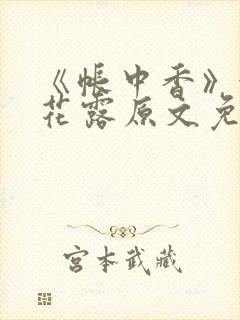 《帐中香》
花露原文免
宫本武藏